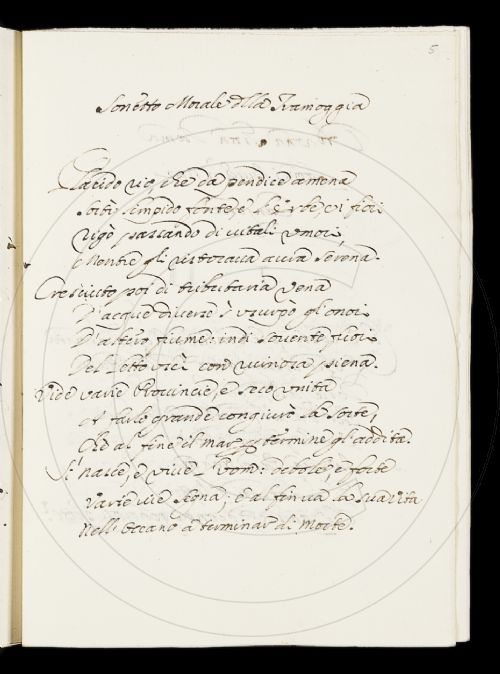 5
Sonetto Morale Della Ramoggia
Placido rio, che da pendice amena
Sortì limpido fonte, e l'Erbe, e i fiori
Rigò passando di vitali umori,
Mentre gli ristorava aura serena.
Cresciuto poi di tributaria vena
D'acque diverse s'usurpò gl'onori
D'altero fiume: indi sovente fuori
Del letto uscì con piena.
Vide varie Provincie, e seco unita
a farlo grande congiurò la sorte,
Che al fine il mar per termine gl'addita.
Sì nasce, e vive l'Uom: debole, e forte
Varie vie segna; e al fin va la sua vita
Nell'Oceano a terminar di Morte.